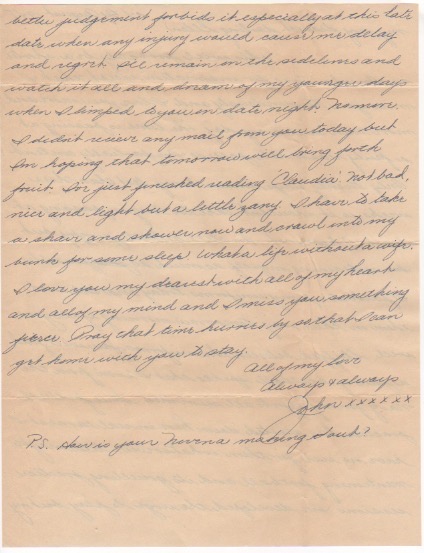 better judgement forbids it especially at this late
date when any injury would cause me delay
and regret. I'll remain on the sidelines and
watch it all and dream of my younger days
when I limped to you on date night. No more.
I didn't recieve any mail from you today but
I'm hoping that tomorrow will bring forth
fruit. I've just finished reading "Claudia" Not bad,
nice and light, but a little zany. I have to take
a shave and shower now and crawl into my
bunk for some sleep. What a life without a wife.
I love you my dearest with all of my heart
and all of my mind and I miss you something
fierce. Pray that time hurries by so that I can
get home with you to stay.
All of my love
Always & always
John xxxxxx
P.S. How is your Novena making out?